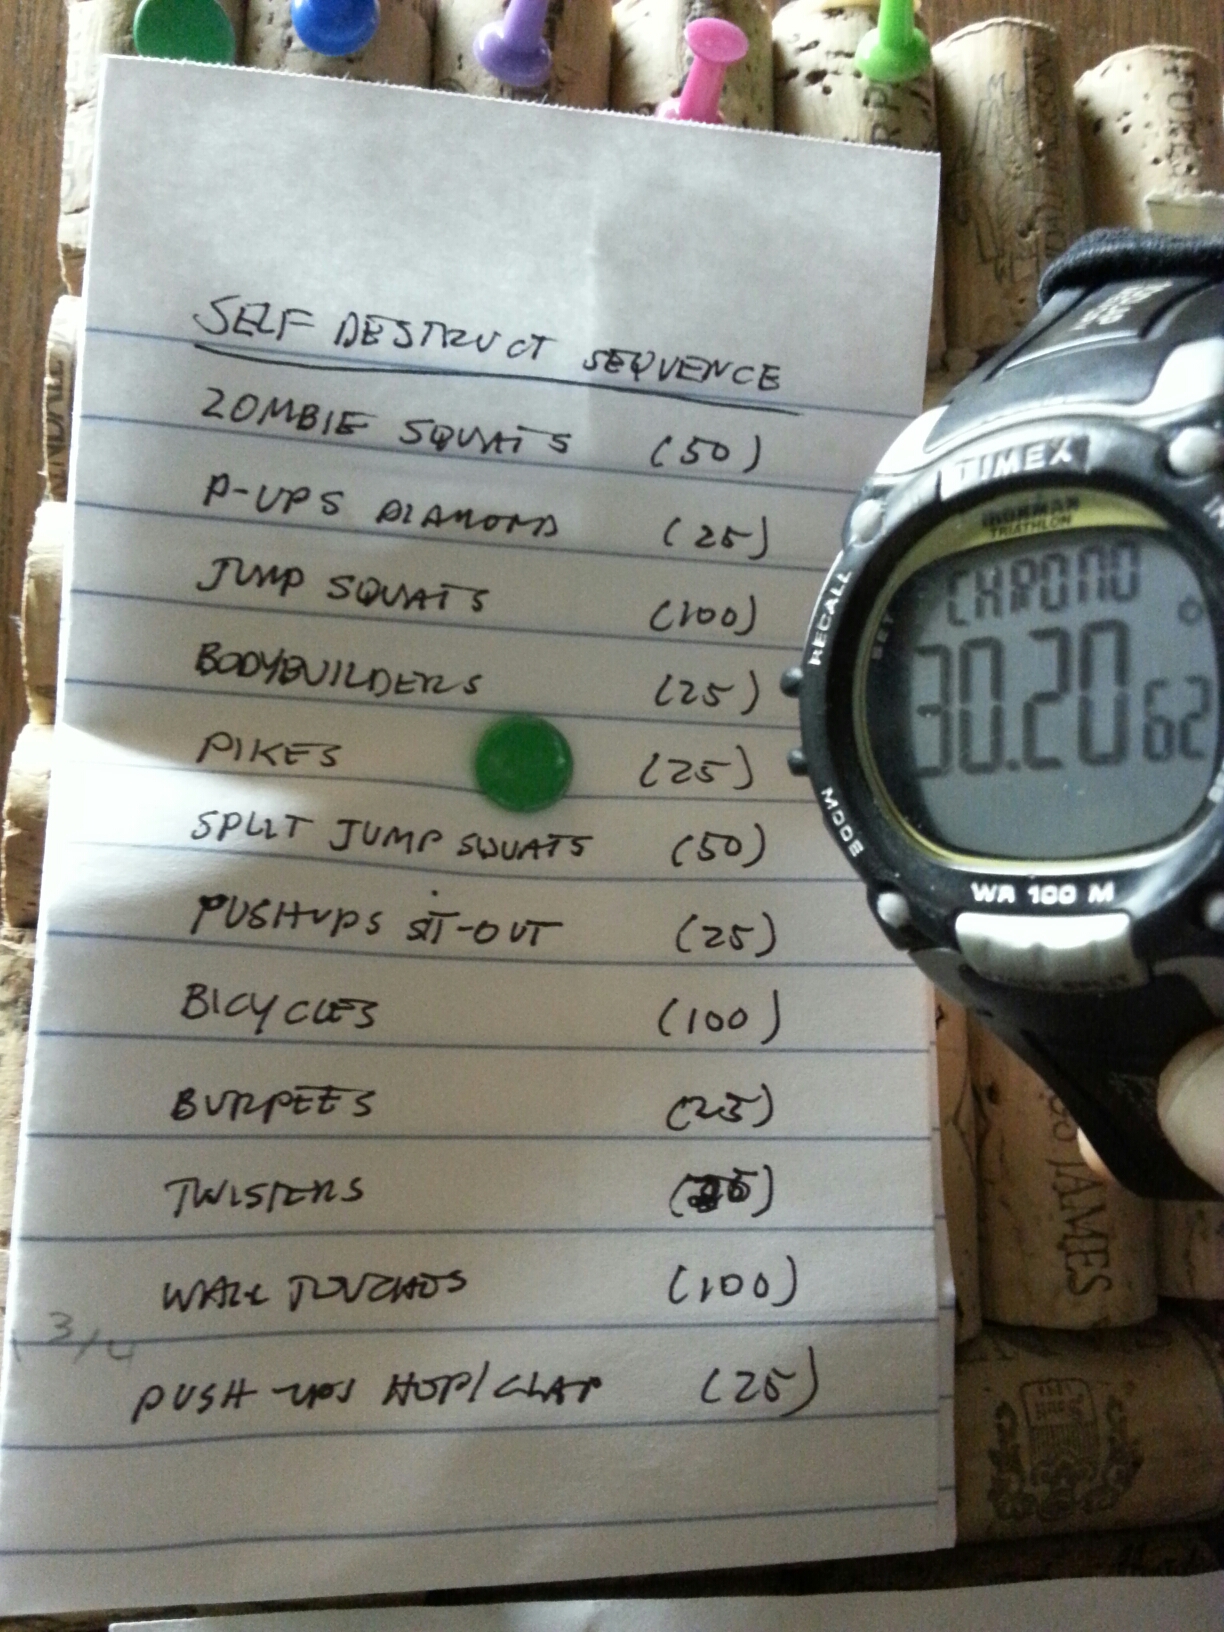 SELF DESTRUCT SEQUENCE
ZOMBIE SQUATS (50)
P-UPS DIAMOND (25)
JUMP SQUATS (100)
BODYBUILDERS (25)
PIKES (25)
SPLIT JUMP SQUATS (50)
PUSHUPS SIT-OUT (25)
BICYCLES (100)
BURPEES (25)
TWISTERS
WALL TOUCHES (100)
3/4
PUSH-UPS HOP/CLAP (25)
TIMEX
IRONMAN
TRIATHLON
RECALL
SET
CHRONO
30.20 62
MODE
WR 100 M
JAMES